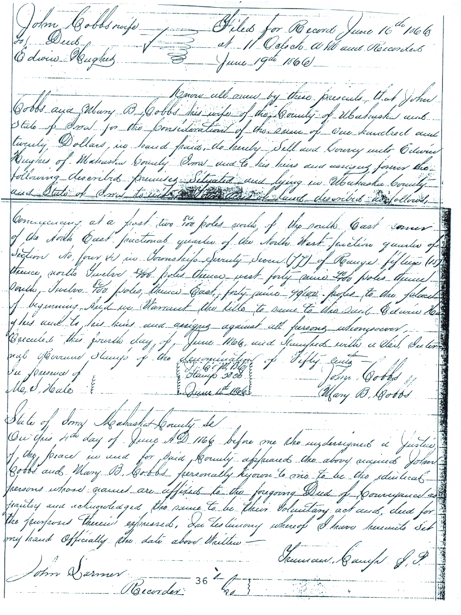 John Cobbs & wife
Deed
Edwin Hughes
Filed for Record June 16th 1866
at 11 Oclock AM and Recorded
June 19th 1866
Know all men by these presents, that John
Cobbs and Mary B. Cobbs his wife of the County of Mahaska and
State of Iowa for the Consideration of the sum of one hundred and
twenty Dollars, in hand paid, do hereby Sell and Convey unto Edwin
Hughes of Mahaska County Iowa and to his heirs and assigns forever the
following described premises Situated and lying in Mahaska County
and State of Iowa to wit land described as follows,
Commencing at a point two poles north of the South East corner
of the North East fractional quarter of the North West fraction quarter of
Section No four in Township Seventy Seven (77) of Range fifteen
thence north twelve poles thence west forty nine poles thence
South, twelve poles thence East, forty nine poles to the place
of beginning. And we Warrant the title to same to the said Edwin
Hughes and to his heirs and assigns against all persons whomsoever
Executed this fourth day of June 1866, and Stamped with a United
Revenue Stamp of the denomination of Fifty cents
In presence of
M. S. Hale
Stamp
June 4th 1866
John Cobbs
Mary B. Cobbs
State of Iowa Mahaska County
On this 4th day of June A.D. 1866 before me the undersigned a Justice
of the peace in and for said County appeared the above named John
Cobbs and Mary B. Cobbs personally known to me to be the identical
persons whose names are affixed to the foregoing Deed of Conveyance as
parties and acknowledged the same to be their voluntary act and deed for
the purposes therein expressed, In testimony whereof I have hereunto set
my hand Officially the date above Written
Truman Camp J. P.
John Larmer
Recorder
36